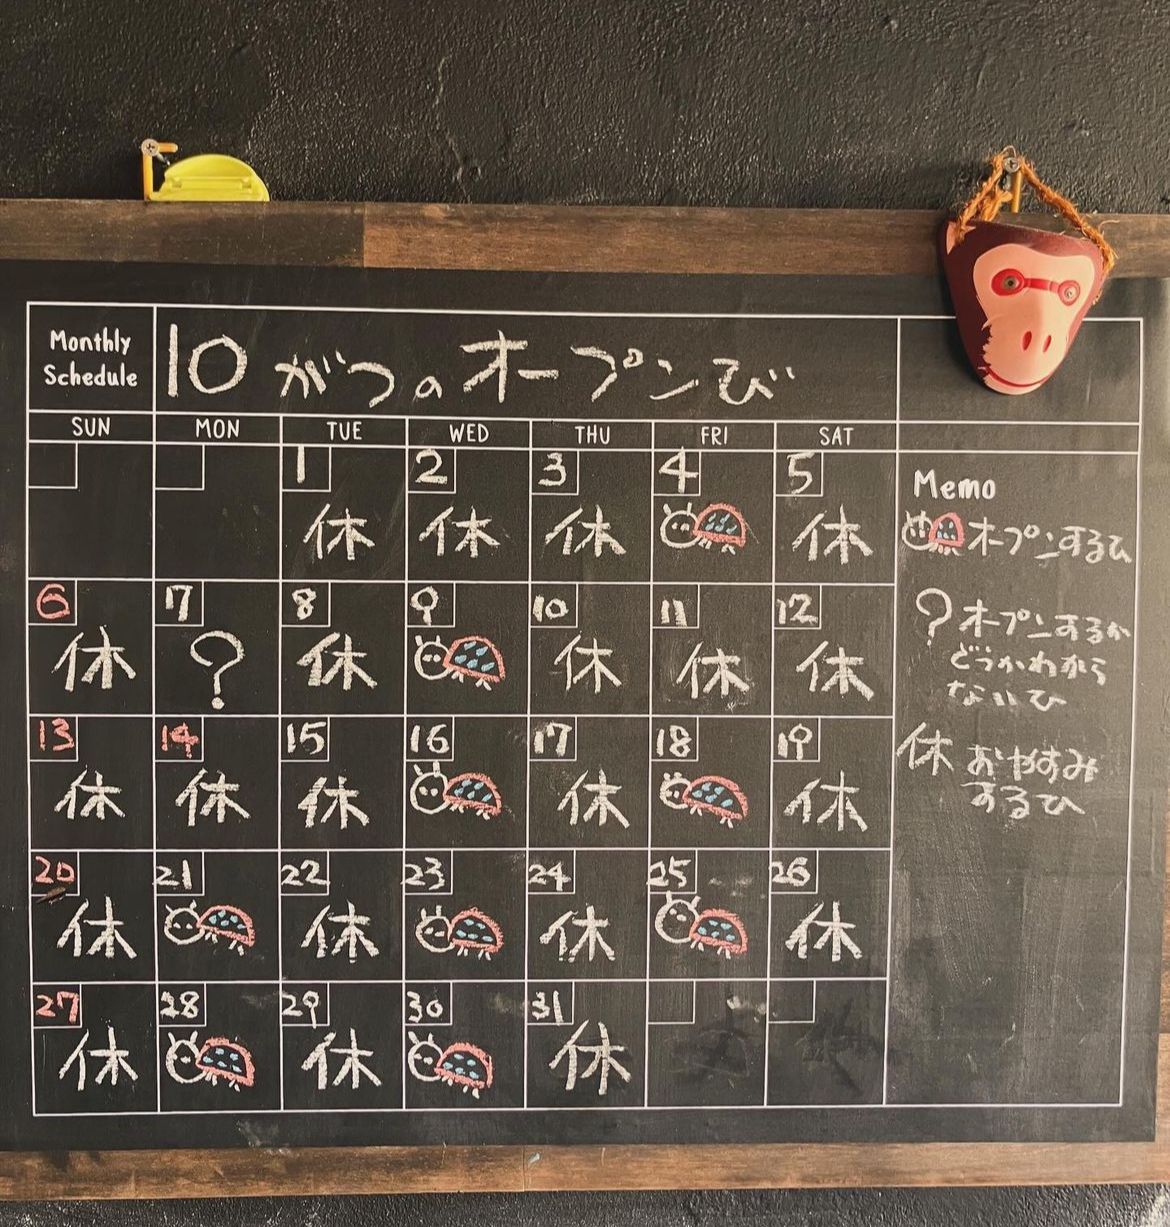 Monthly
Schedule
10がつのオープンび
SUN MON TUE WED THU FRI SAT
1 2 3 4 5
休 休 休 休
6 7 8 9 10 11 12
休 ? 休 休 休 休
13 14 15 16 17 18 19
休 休 休 休 休
20 21 22 23 24 25 26
休 休 休 休
27 28 29 30 31
休 休 休
Memo
オープンするひ
? オープンするか
どうかわから
ないひ
休 おやすみ
するひ